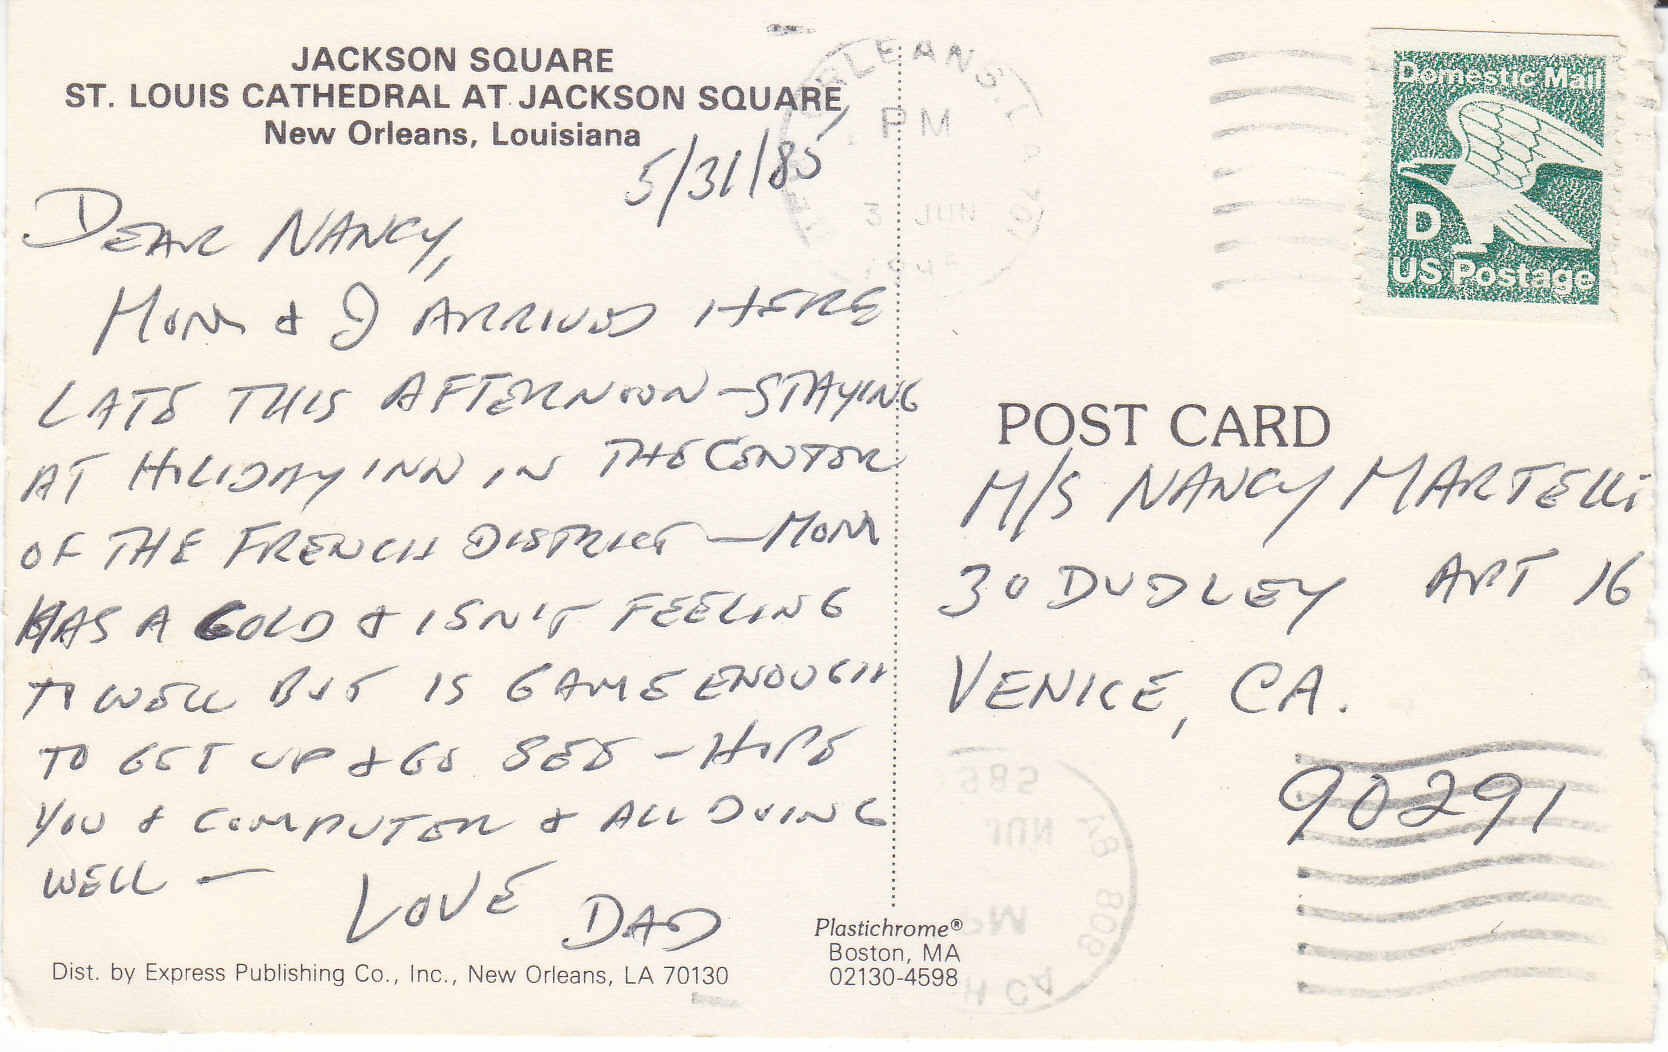 JACKSON SQUARE
ST. LOUIS CATHEDRAL AT JACKSON SQUARE
New Orleans, Louisiana
5/31/85
DEAR NANCY,
MOM & I ARRIVED HERE
LATE THIS AFTERNOON - STAYING
AT HILIDAY INN IN THE CENTER
OF THE FRENCH DISTRICT - MOM
HAS A COLD & ISN'T FEELING
TO WELL BUT IS GAME ENOUGH
TO GET UP & GO SEE - HOPE
YOU & COMPUTER & ALL DOING
WELL -
LOVE DAD
Dist. by Express Publishing Co., Inc., New Orleans, LA 70130
Plastichrome®
Boston, MA
02130-4598
ORLEANS, LA
PM
3 JUN
Domestic Mail
D
US Postage
POST CARD
M/S NANCY MARTELLI
30 DUDLEY APT 16
VENICE, CA.
90291